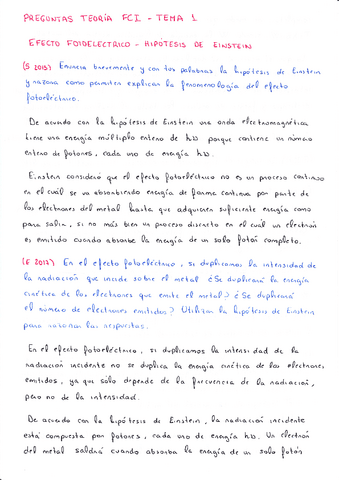 PREGUNTAS TEORÍA FCI - TEMA 1
EFECTO FOTOELÉCTRICO - HIPÓTESIS DE EINSTEIN
(S 2013) Enuncia brevemente y con tus palabras la hipótesis de Einstein
y razona como permiten explicar la fenomenología del efecto
fotoeléctrico.
De acuerdo con la hipótesis de Einstein una onda electromagnética
tiene una energía múltiplo entero de hν porque contiene un número
entero de fotones, cada uno de energía hν.
Einstein consideró que el efecto fotoeléctrico no es un proceso continuo
en el cuál se va absorbiendo energía de forma continua por parte de
los electrones del metal hasta que adquieren suficiente energía como
para salir, si no más bien un proceso discreto en el cuál un electrón
es emitido cuando absorbe la energía de un solo fotón completo.
(E 2017) En el efecto fotoeléctrico, si duplicamos la intensidad de
la radiación que incide sobre el metal ¿Se duplicará la energía
cinética de los electrones que emite el metal? ¿Se duplicará
el número de electrones emitidos? Utilizar la hipótesis de Einstein
para razonar las respuestas.
En el efecto fotoeléctrico, si duplicamos la intensidad de la
radiación incidente no se duplica la energía cinética de los electrones
emitidos, ya que sólo depende de la frecuencia de la radiación,
pero no de la intensidad.
De acuerdo con la hipótesis de Einstein, la radiación incidente
está compuesta por fotones, cada uno de energía hν. Un electrón
del metal saldrá cuando absorba la energía de un solo fotón